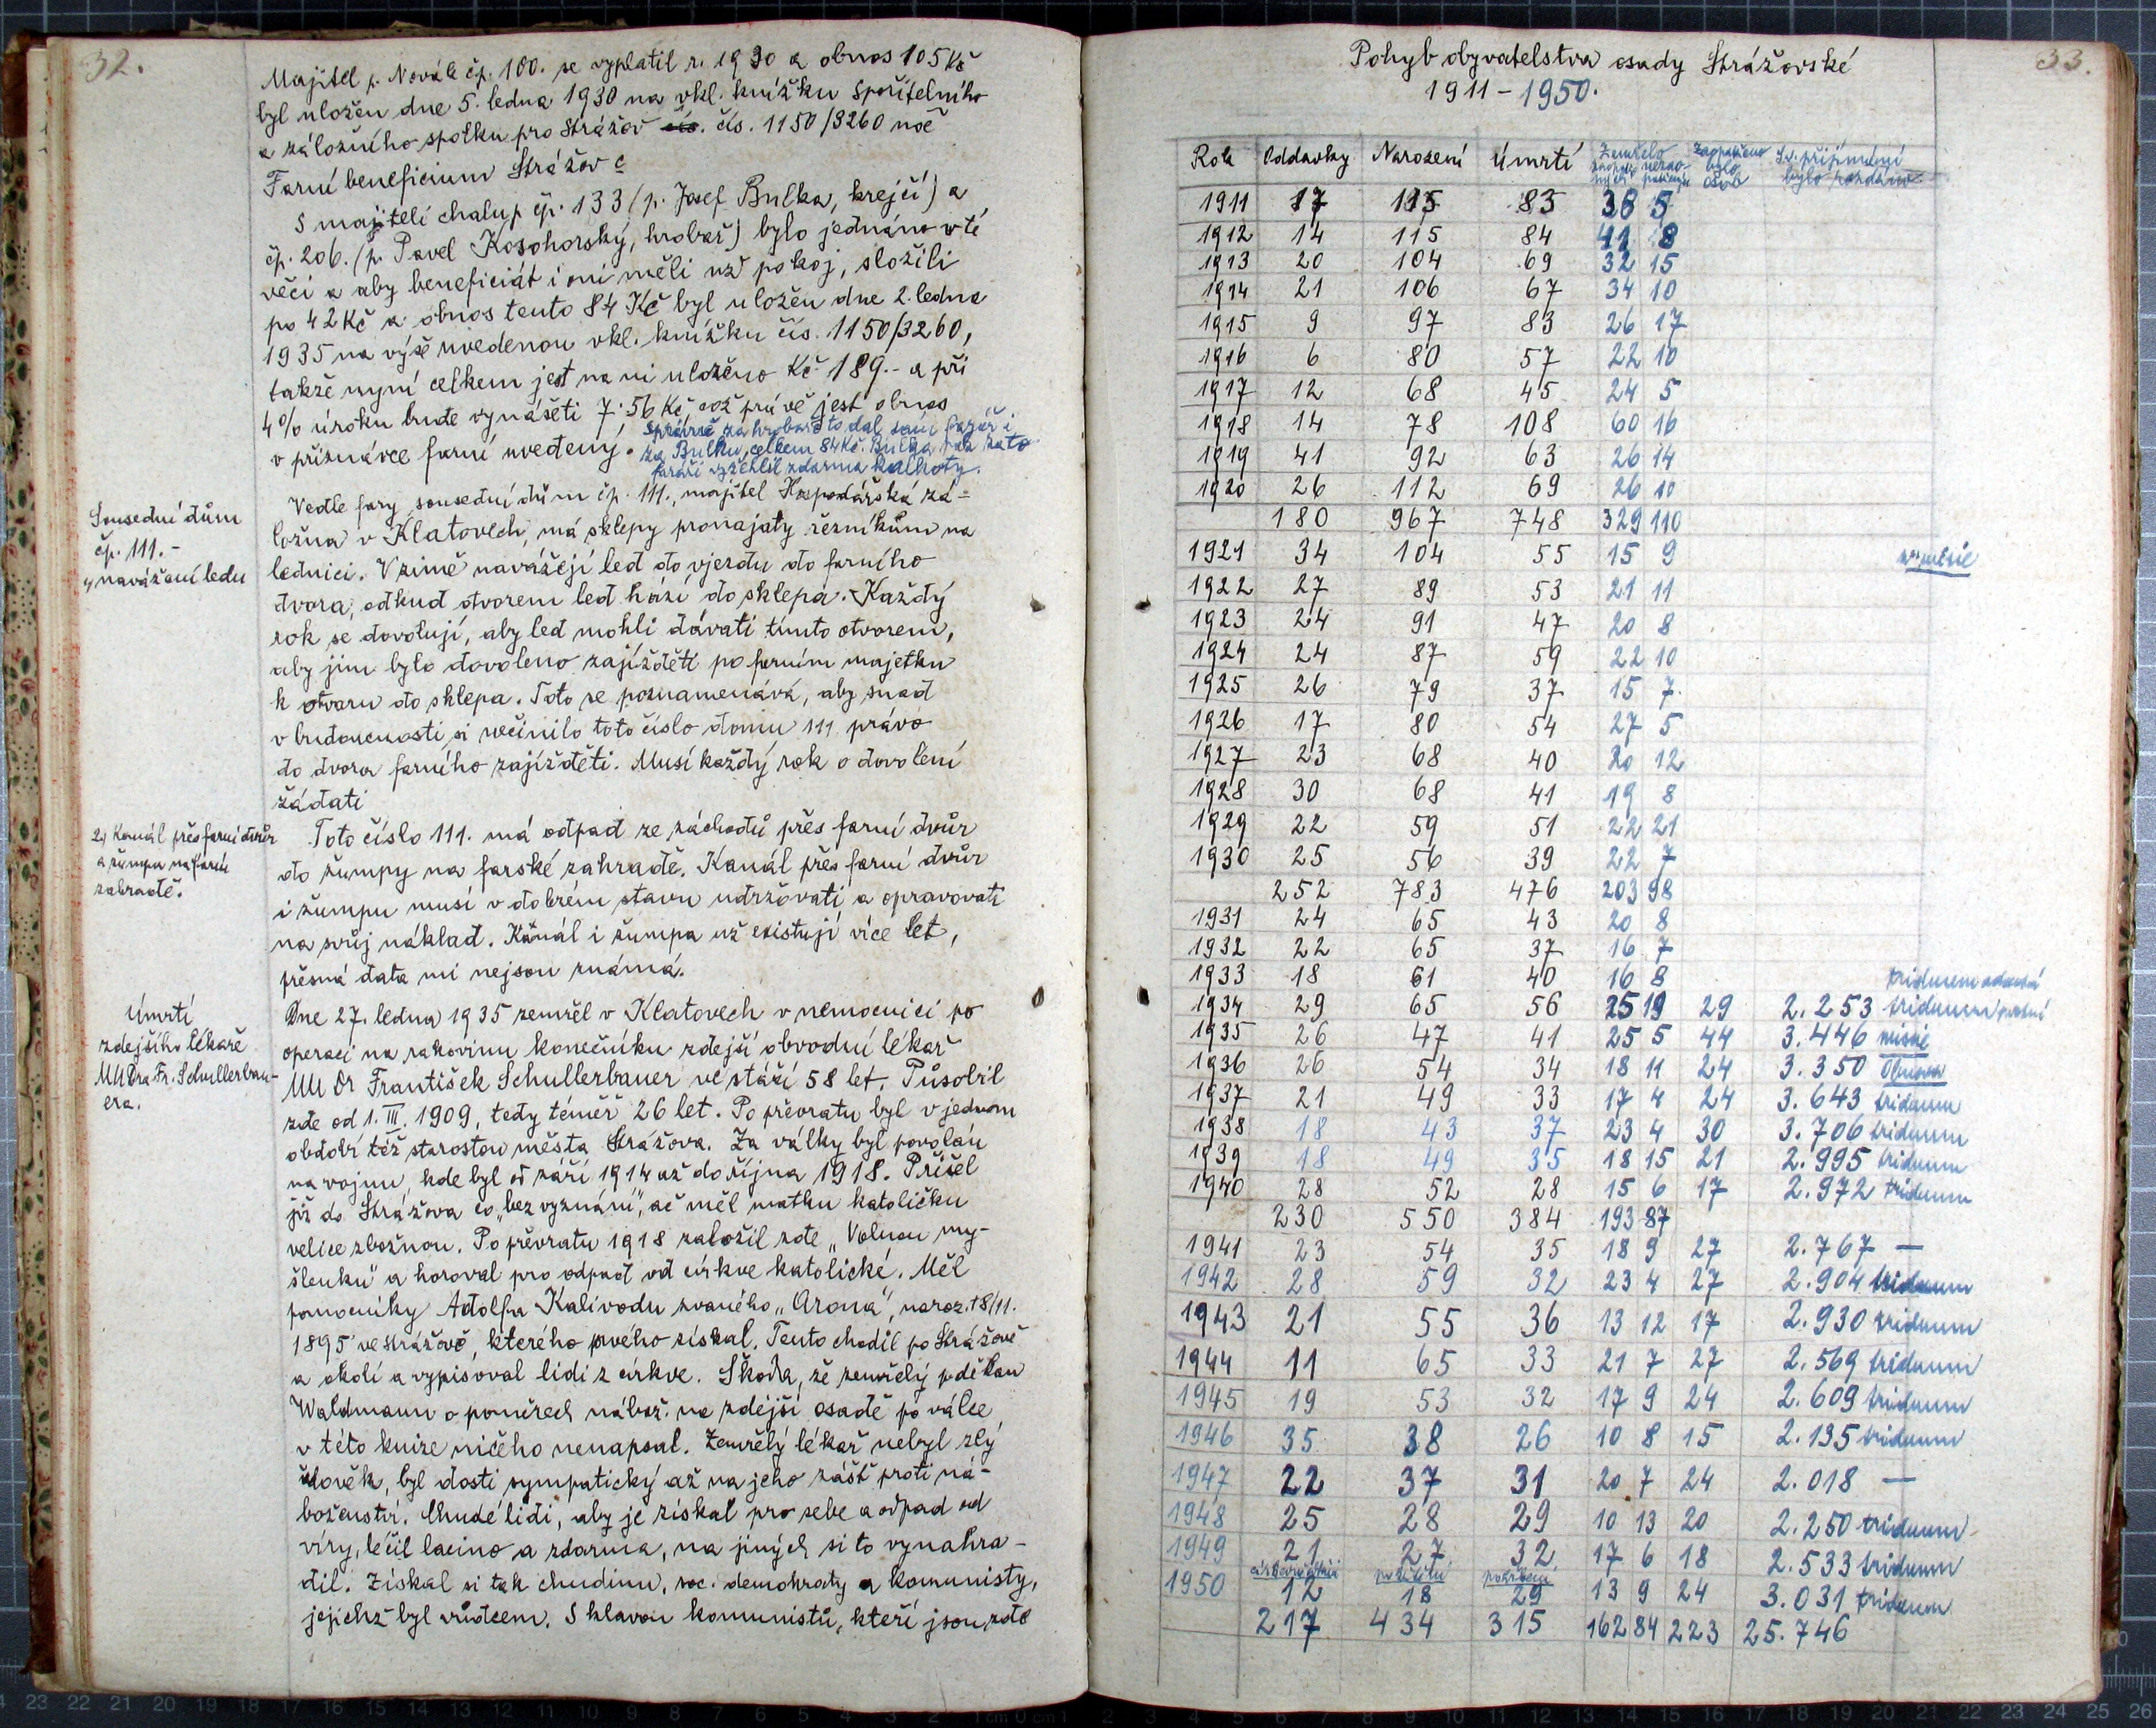 32.
Majitel p. Novák čp. 100. se vyplatil r. 1930 a obnos 105 Kč
byl uložen dne 5. ledna 1930 na vkl. knížku Spořitelního
a záložního spolku pro Strážov čís. čís. 1150/3260
Farní beneficium Strážov
S majiteli chalup čp. 133 (p. Josef Bulka, krejčí) a
čp. 206. (p. Pavel Kosohorský, hrobař) bylo jednáno v té
věci a aby beneficiát i oni měli už pokoj, složili
po 42 Kč a obnos tento 84 Kč byl uložen dne 2. ledna
1935 na výše uvedenou vkl. knížku čís. 1150/3260,
takže nyní celkem jest na ni uloženo Kč 189.- a při
4% úroku bude vynášeti 7.56 Kč což právě jest obnos
v přiznávce farní uvedený.
Správně za hrobaře to dal sám farář i
za Bulku, celkem 84 Kč. Bulka zato
faráři vyžehlil zdarma kalhoty.
Sousední dům
čp. 111.-
navážení ledu
Vedle fary sousední dům čp. 111., majitel Hospodářská zá=
ložna v Klatovech, má sklepy pronajaty řezníkům na
lednici. V zimě navážejí led do vjezdu do farního
dvora, odkud otvorem led hází do sklepa. Každý
rok se dovolují, aby led mohli dávati tímto otvorem,
aby jim bylo dovoleno zajížděti po farním majetku
k otvoru do sklepa. Toto se poznamenává, aby snad
v budoucnosti si nečinilo toto číslo domu 111 právo
do dvora farního zajížděti. Musí každý rok o dovolení
žádati
2) Kanál přes farní dvůr
a žumpa na farní
zahradě.
Toto číslo 111. má odpad ze záchodů přes farní dvůr
do žumpy na farské zahradě. Kanál přes farní dvůr
i žumpu musí v dobrém stavu udržovati a opravovati
na svůj náklad. Kanál i žumpa už existují více let,
přesná data mi nejsou známá.
Úmrtí
zdejšího lékaře
MUDra Fr. Schullerbau-
era.
Dne 27. ledna 1935 zemřel v Klatovech v nemocnici po
operaci na rakovinu konečníku zdejší obvodní lékař
MUDr František Schullerbauer ve stáří 58 let. Působil
zde od 1. III. 1909, tedy téměř 26 let. Po převratu byl v jednom
období též starostou města Strážova. Za války byl povolán
na vojnu, kde byl od září 1914 až do října 1918. Přišel
již do Strážova co „bez vyznání", ač měl matku katoličku
velice zbožnou. Po převratu 1918 založil zde „Volnou my-
šlenku" a horoval pro odpad od církve katolické. Měl
pomocníky Adolfa Kalivodu zvaného „Arona", naroz. 18/11.
1895 ve Strážově, kterého prvého získal. Tento chodil po Strážově
a okolí a vypisoval lidi z církve. Škoda, že zemřelý p. děkan
Waldmann o poměrech nábož. na zdejší osadě po válce
v této knize ničeho nenapsal. Zemřelý lékař nebyl zlý
člověk, byl dosti sympatický až na jeho zášť proti ná-
boženství. Chudé lidi, aby je získal pro sebe a odpad od
víry, léčil lacino a zdarma, na jiných si to vynahra-
dil. Získal si tak chudinu, soc. demokraty a komunisty,
jejichž byl vůdcem. S hlavou komunistů, kteří jsou zde
33.
Pohyb obyvatelstva osady Strážovské
1911 - 1950.
Rok Oddavky Narození Úmrtí Zemřelo zaopatřených nezaopatřených Zaopatřeno bylo osob Sv. přijímání bylo rozdáno
1911 17 115 83 38 5
1912 14 115 84 41 8
1913 20 104 69 32 15
1914 21 106 67 34 10
1915 9 97 83 26 17
1916 6 80 57 22 10
1917 12 68 45 24 5
1918 14 78 108 60 16
1919 41 92 63 26 14
1920 26 112 69 26 10
180 967 748 329 110
1921 34 104 55 15 9
1922 27 89 53 21 11
1923 24 91 47 20 8
1924 24 87 59 22 10
1925 26 79 37 15 7
1926 17 80 54 27 5
1927 23 68 40 20 12
1928 30 68 41 19 8
1929 22 59 51 22 21
1930 25 56 39 22 7
252 783 476 203 98
1931 24 65 43 20 8
1932 22 65 37 16 7
1933 18 61 40 16 8 triduum adventní
1934 29 65 56 25 19 29 2.253 triduum postní
1935 26 47 41 25 5 44 3.446 misie
1936 26 54 34 18 11 24 3.350 Obnova
1937 21 49 33 17 4 24 3.643 triduum
1938 18 43 37 23 4 30 3.706 triduum
1939 18 49 35 18 15 21 2.995 triduum
1940 28 52 28 15 6 17 2.972 triduum
230 550 384 193 87
1941 23 54 35 18 9 27 2.767 —
1942 28 59 32 23 4 27 2.904 triduum
1943 21 55 36 13 12 17 2.930 triduum
1944 11 65 33 21 7 27 2.569 triduum
1945 19 53 32 17 9 24 2.609 triduum
1946 35 38 26 10 8 15 2.135 triduum
1947 22 37 31 20 7 24 2.018 —
1948 25 28 29 10 13 20 2.250 triduum
1949 21 27 32 17 6 18 2.533 triduum
1950 12 18 29 13 9 24 3.031 triduum
217 434 315 162 84 223 25.746